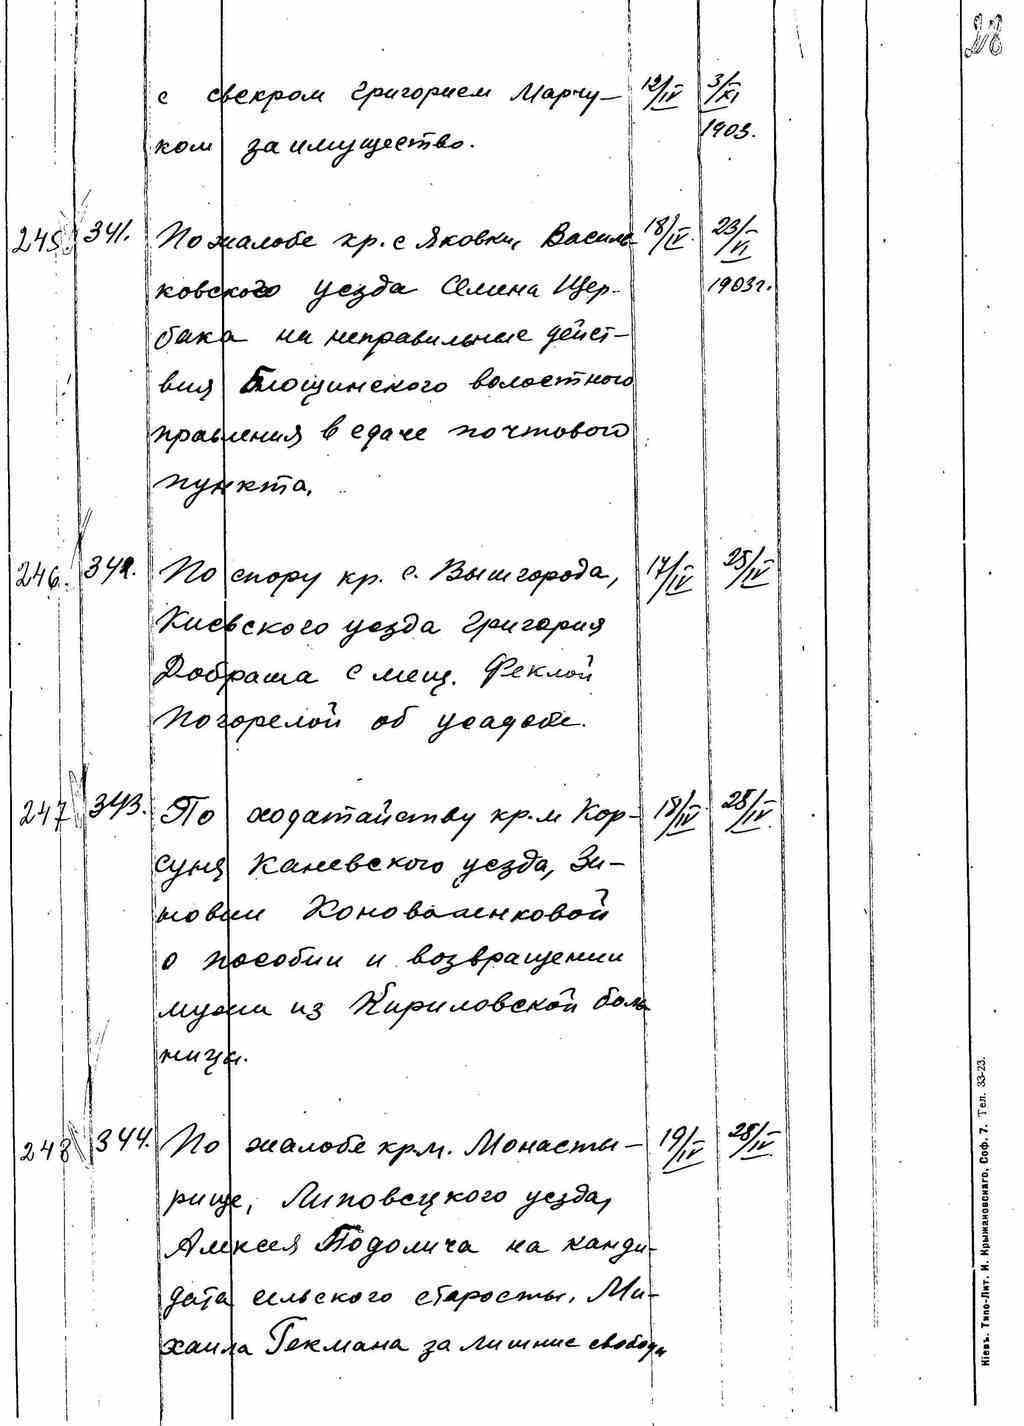 28
с свекром Григорием Марчу- 12/IV 3/XI
ком за имущество. 1903.
245 341. По жалобе кр. с Яковки, Василь- 18/IV. 23/VI
ковского уезда Семена Щер- 1903г.
бака на неправильные дейст-
вия Блощинского волостного
правления в сдаче почтового
пункта.
246. 342. По спору кр. с. Вышгорода, 17/IV 25/IV
Киевского уезда Григория
Добраша с мещ. Феклой
Погорелой об усадьбе.
247 343. По ходатайству кр. м Кор- 18/IV 28/IV
суня Каневского уезда, Зи-
новии Коноваленковой
о пособии и возвращении
мужа из Кириловской боль
ницы.
248 344. По жалобе кр. м. Монасты- 19/IV 28/IV
рище, Липовецкого уезда,
Алексея Подолича на канди-
дата сельского старосты, Ми-
хаила Гекмана за лишние свободы
Кіевъ. Типо-Лит. И. Крыжановскаго, Соф. 7. Тел. 33-23.